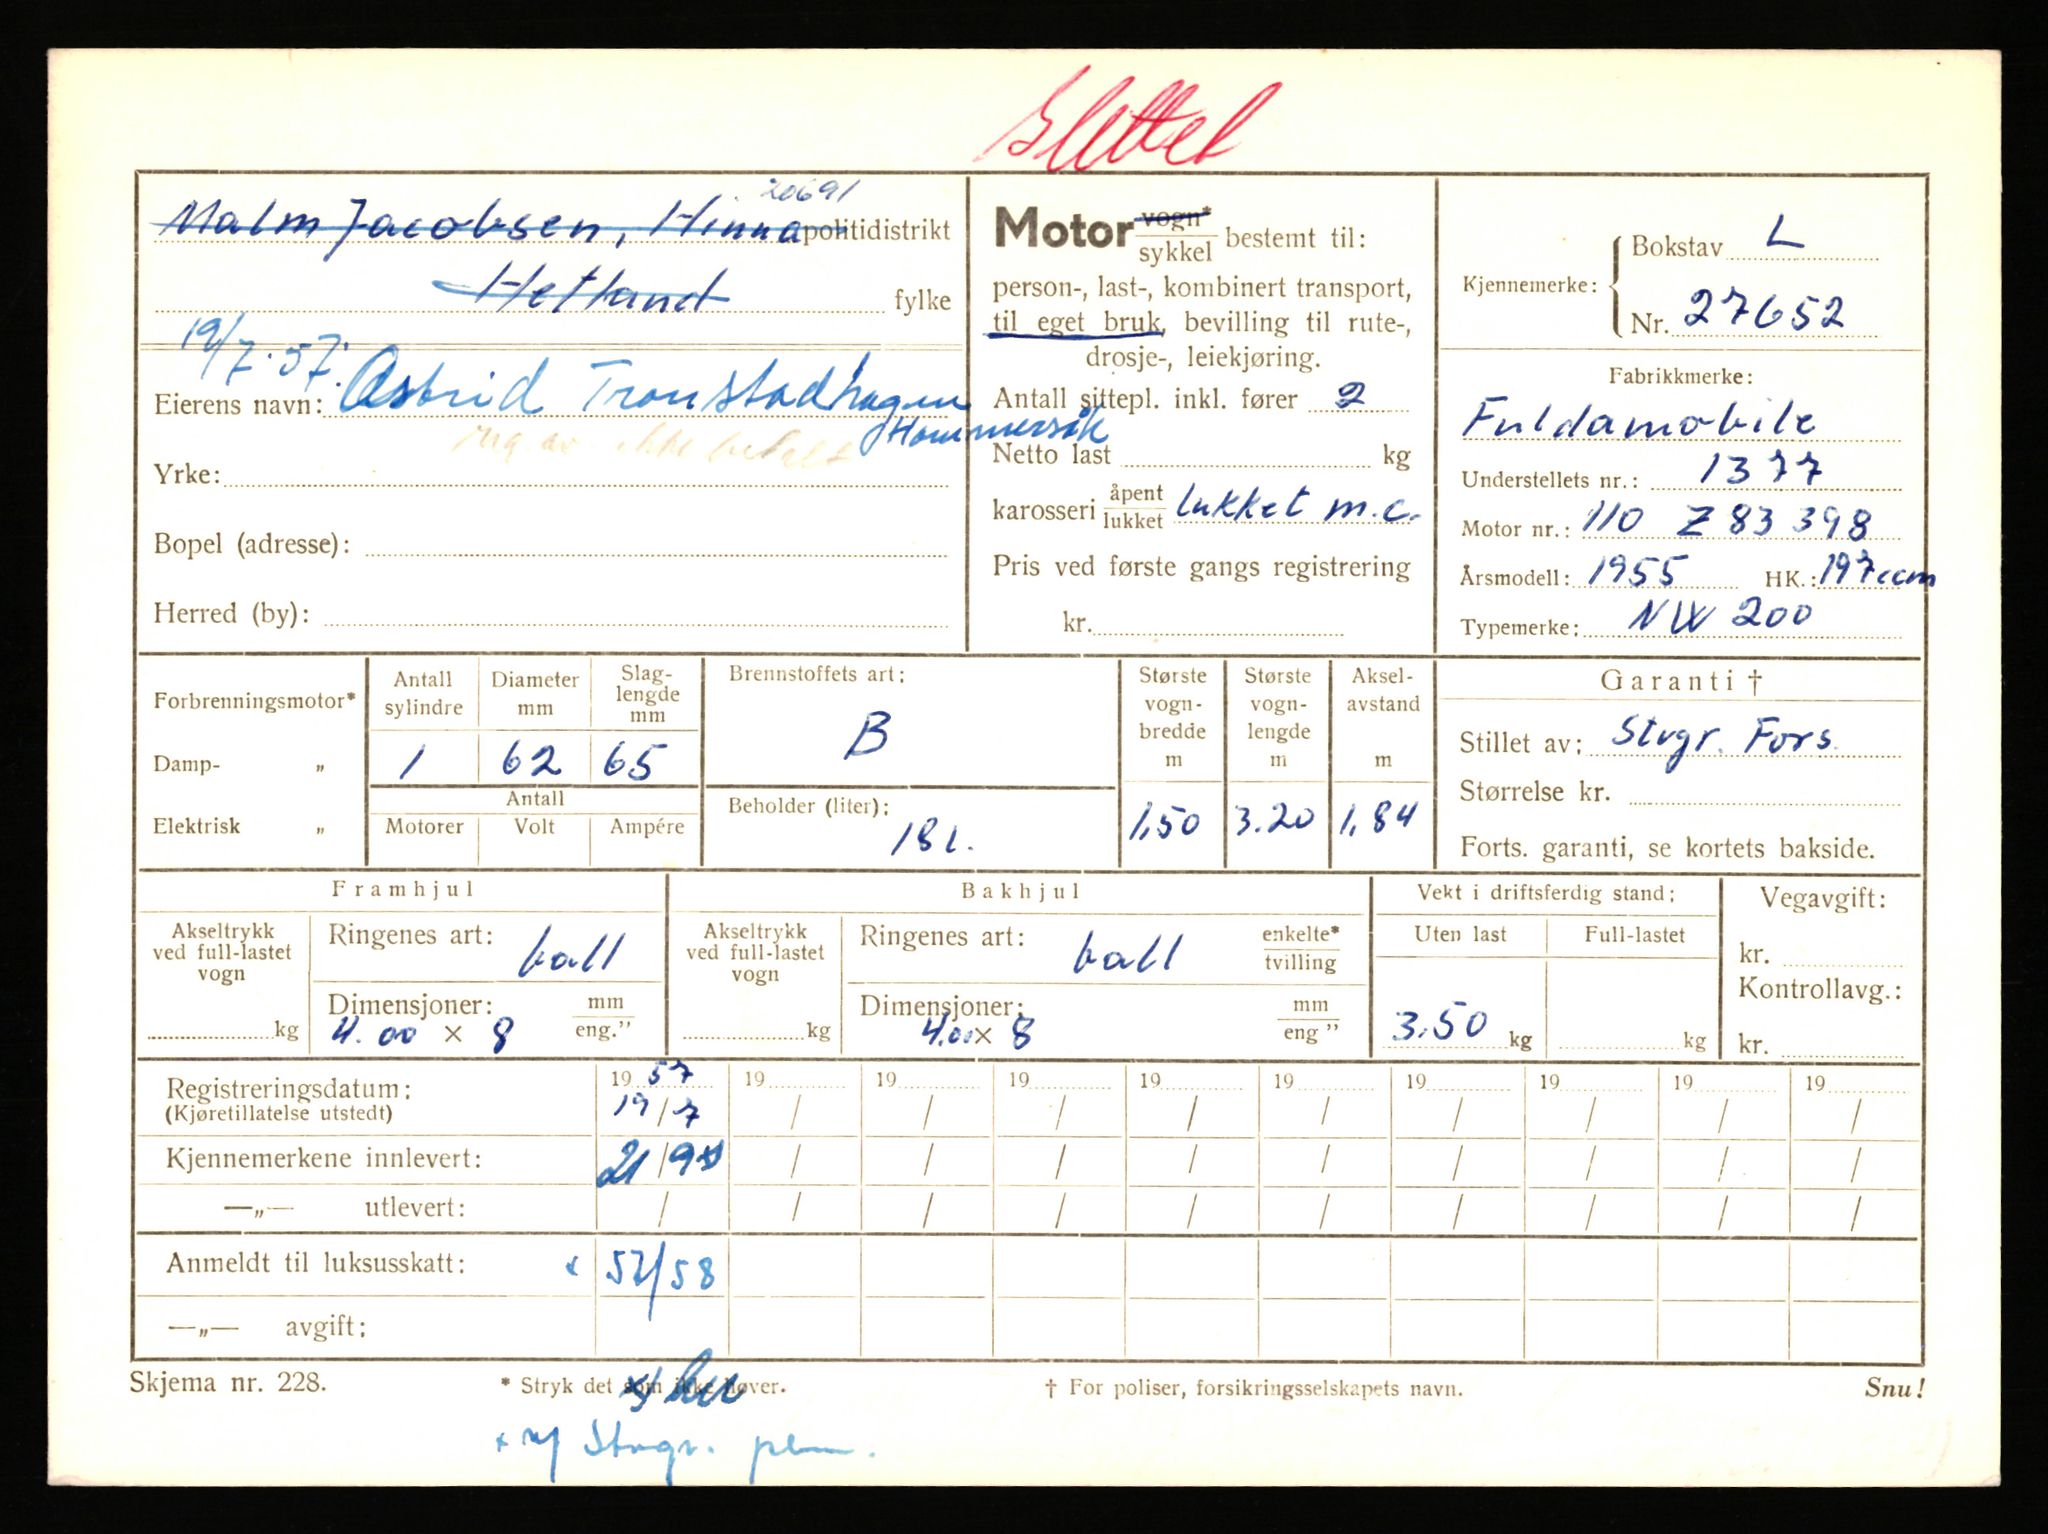 Slettet
20691
Malm Jacobsen, Hinna politidistrikt
Hetland fylke
19/7.57.
Eierens navn: Astrid Tronstadhagen
Hommersåk
ikke betalt
Yrke:
Bopel (adresse):
Herred (by):
Motor vogn* / sykkel bestemt til:
person-, last-, kombinert transport,
til eget bruk, bevilling til rute-,
drosje-, leiekjøring.
Antall sittepl. inkl. fører 2
Netto last kg
karosseri åpent / lukket lukket m.c.
Pris ved første gangs registrering
kr.
Kjennemerke: Bokstav L
Nr. 27652
Fabrikkmerke:
Fuldamobile
Understellets nr.: 1377
Motor nr.: 110 Z 83398
Årsmodell: 1955 HK.: 197 ccm
Typemerke: NW 200
Forbrenningsmotor*
Damp- „
Elektrisk „
Antall sylindre
1
Diameter mm
62
Slag-lengde mm
65
Antall
Motorer Volt Ampére
Brennstoffets art:
B
Beholder (liter):
18 l.
Største vogn-bredde m
1,50
Største vogn-lengde m
3.20
Aksel-avstand m
1,84
Garanti †
Stillet av: Stvgr. Fors.
Størrelse kr.
Forts. garanti, se kortets bakside.
Framhjul
Akseltrykk ved full-lastet vogn
kg
Ringenes art: ball
Dimensjoner: mm / eng.”
4.00 × 8
Bakhjul
Akseltrykk ved full-lastet vogn
kg
Ringenes art: ball enkelte* / tvilling
Dimensjoner: mm / eng ”
4.00 × 8
Vekt i driftsferdig stand:
Uten last Full-lastet
3.50 kg kg
Vegavgift:
kr.
Kontrollavg.:
kr.
Registreringsdatum: 19 57 19 19 19 19 19 19 19 19 19
(Kjøretillatelse utstedt) 19/7 / / / / / / / / /
Kjennemerkene innlevert: 21/9 / / / / / / / / /
—„— utlevert: / / / / / / / / / /
Anmeldt til luksusskatt: x 57/58
—„— avgift:
Skjema nr. 228. * Stryk det som ikke høver. † For poliser, forsikringsselskapets navn. Snu!
Stvgr.